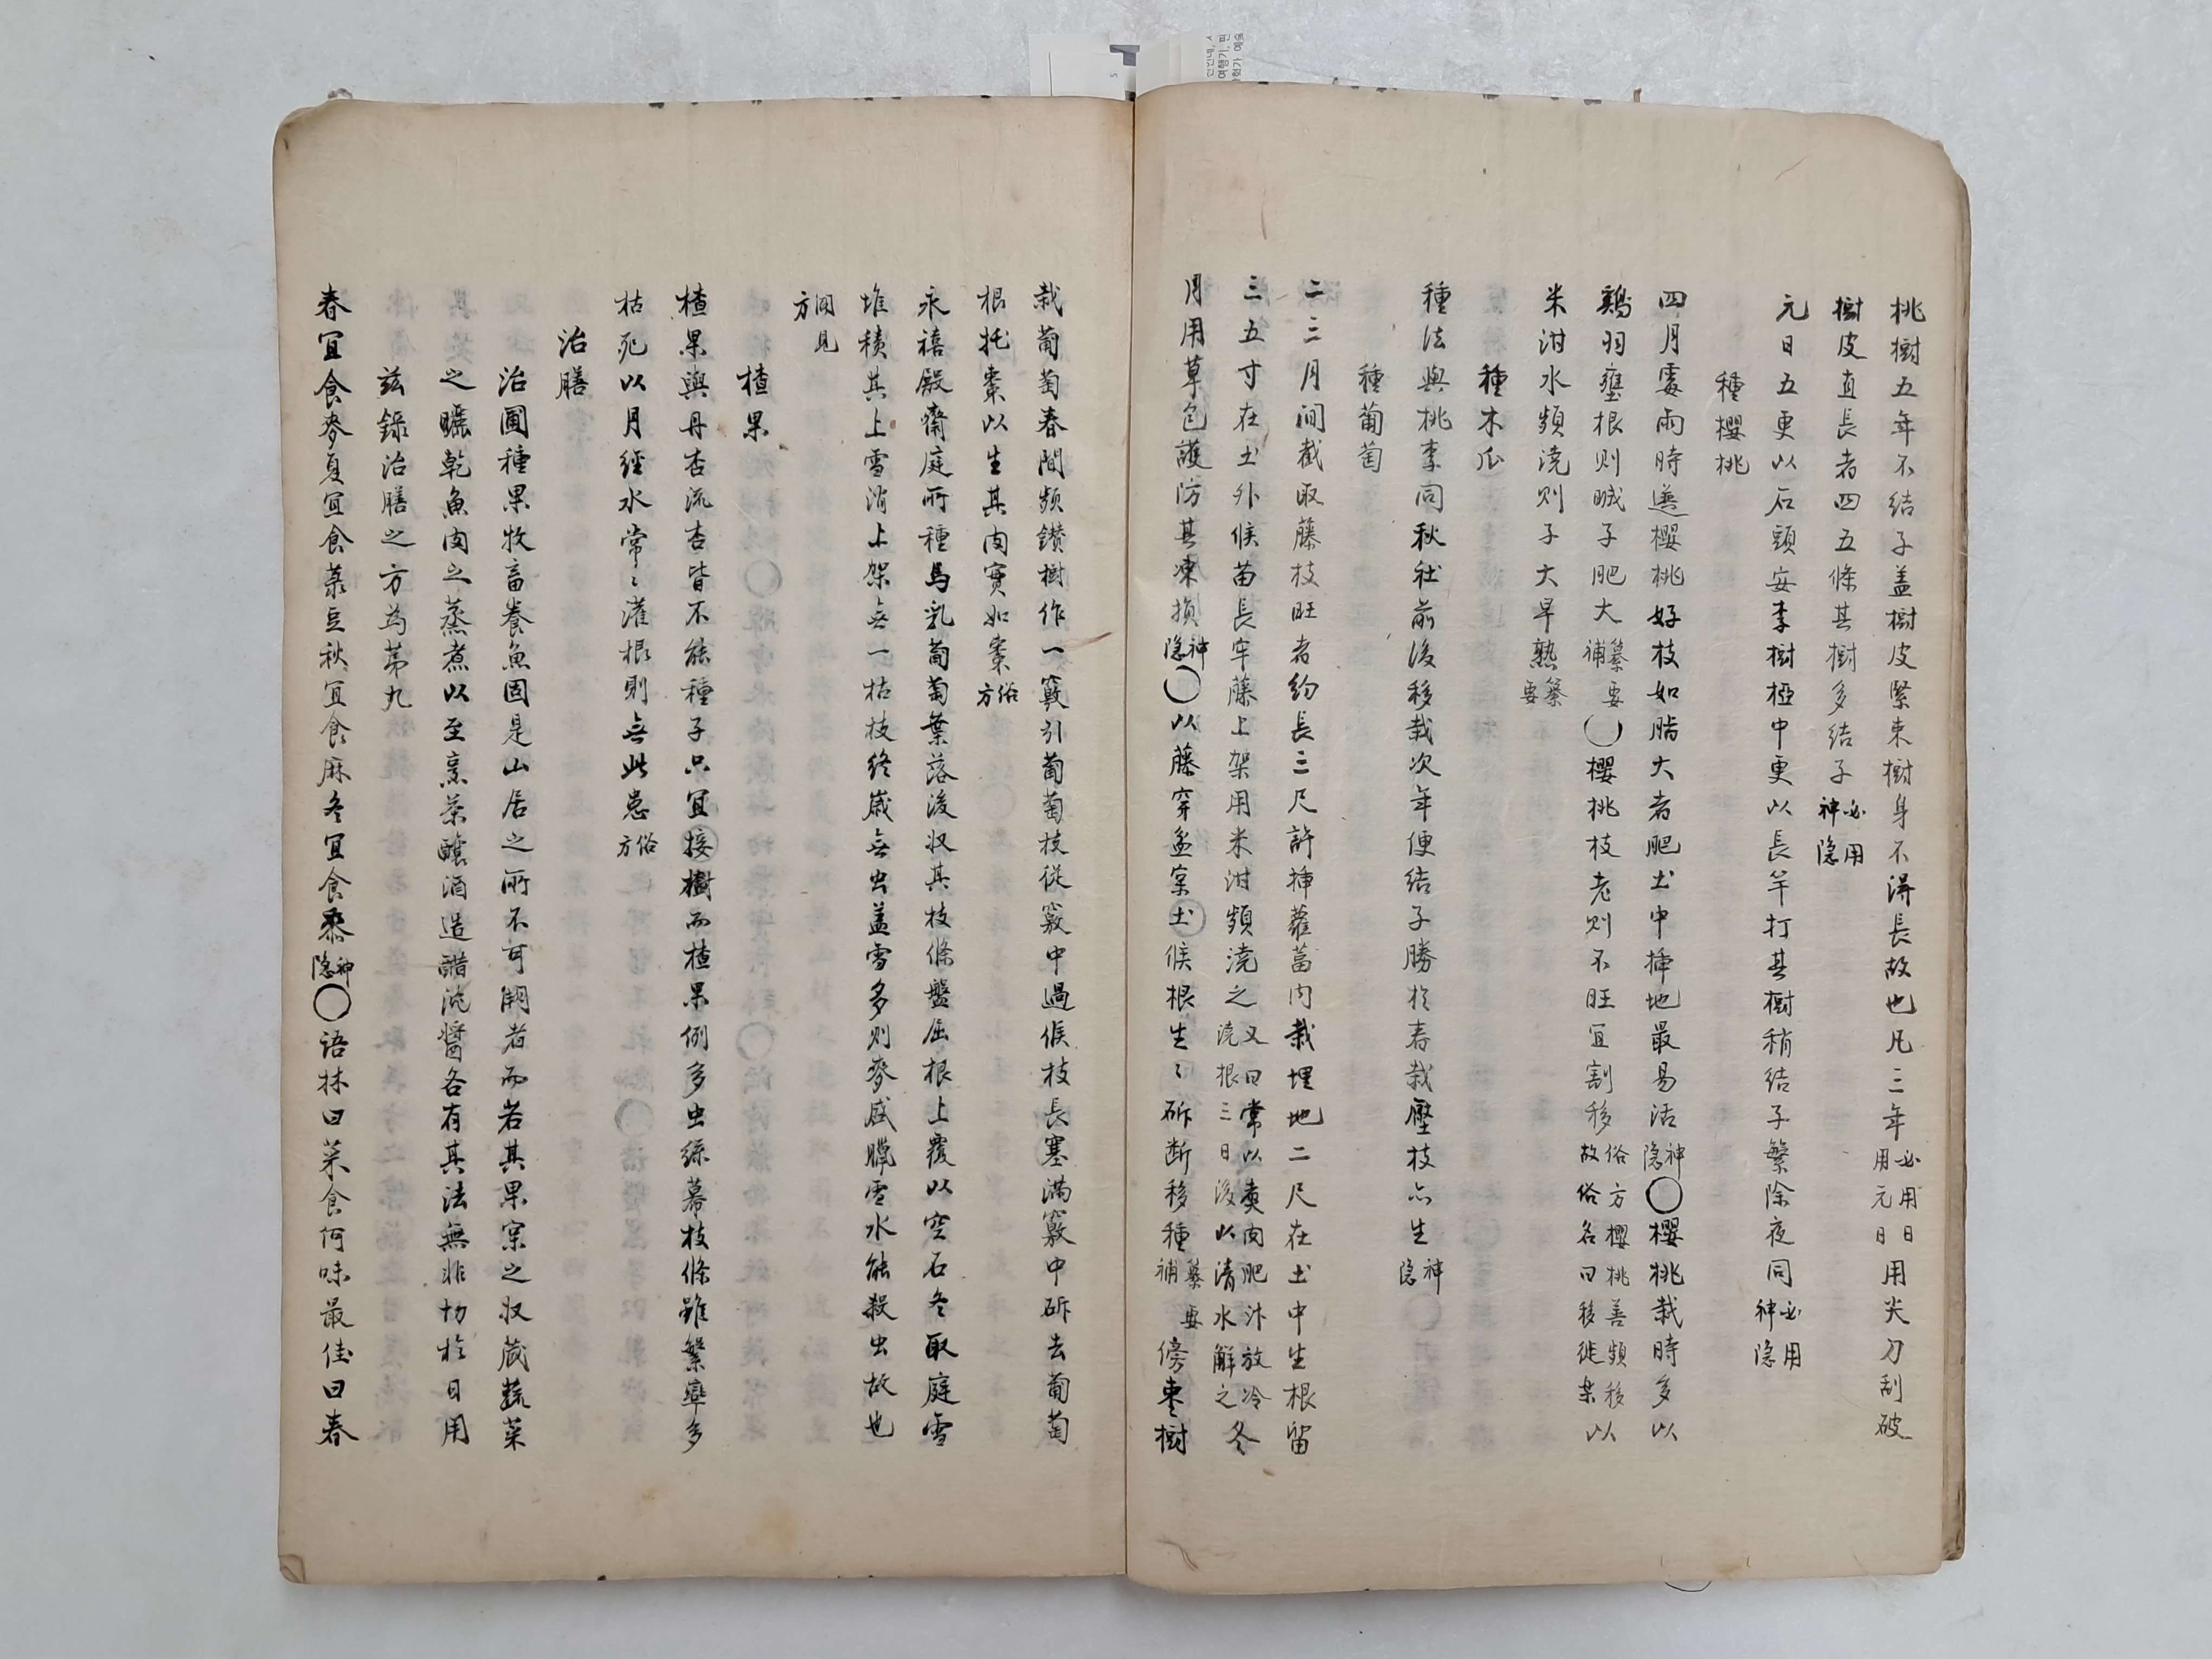 桃樹五年不結子盖樹皮緊束樹身不得長故也凡三年必用日用元日用尖刀刮破
樹皮直長者四五條其樹多結子必用神隐
元日五更以石頭安李樹椏中更以長竿打其樹稍結子繁除夜同必用神隐
種櫻桃
四月霎雨時選櫻桃好枝如脂大者肥土中揷地最易活神隐〇櫻桃栽時多以
鷄羽壅根則醎子肥大纂要補〇櫻桃枝老則不旺宜割移俗方櫻桃善頻移故俗名曰移徙樂以
米泔水頻澆則子大早熟纂要
種木瓜
種法與桃李同秋社前後移栽次年便結子勝於春栽壓枝亦生神隐
種葡萄
二三月间截取藤枝旺者約長三尺許揷蘿葍内栽埋地二尺在土中生根留
三五寸在土外候苗長牢藤上架用米泔頻澆之又曰常以煮肉肥汁放冷澆根三日後以清水解之冬
月用草包護防其凍損神隐〇以藤穿盆窠土候根生〻斫断移種纂要補傍枣樹
栽葡萄春間頻鑚樹作一竅引葡萄枝從竅中過候枝長塞滿竅中斫去葡萄
根托棗以生其肉實如棗俗方
永禧殿齋庭所種馬乳葡萄葉落後收其枝條盤屈根上覆以空石冬取庭雪
堆積其上雪消上架無一枯枝終嵗無虫盖雪多則麥盛臘雪水能殺虫故也
聞見方
楂果
楂果與丹杏流杏皆不能種子只宜接樹而楂果例多虫絲幕枝條雖繁率多
枯死以月經水常〻灌根則無此患俗方
治膳
治圃種果牧畜養魚固是山居之所不可闕者而若其果窠之収蔵蔬菜
之曬乾魚肉之蒸煮以至烹茶釀酒造醋沈醬各有其法無非切於日用
玆錄治膳之方為苐九
春宜食麥夏宜食菉豆秋宜食麻冬宜食黍神隐〇语林曰菜食何味最佳曰春